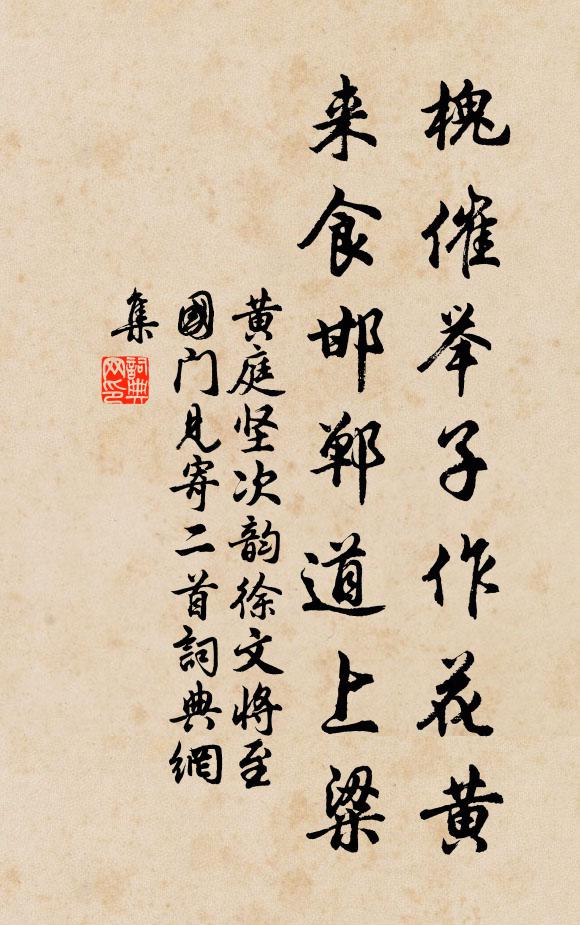 槐催举子作花黄
来食邯郸道上粱
黄庭坚次韵徐文将至
國门见寄二首詞典網
集
詞典網印